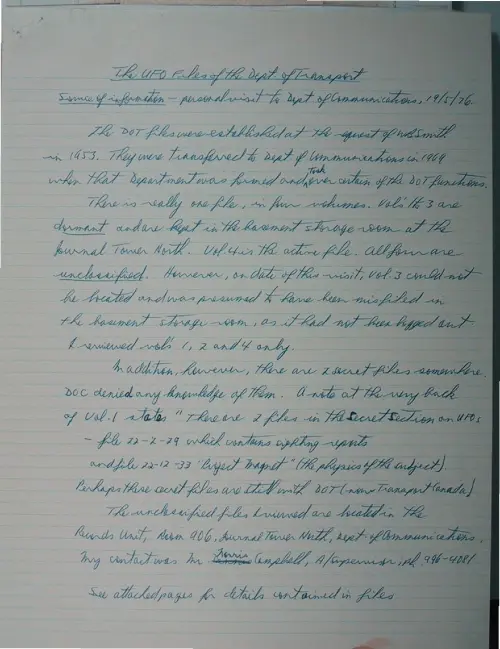 The UFO Files of the Dept of Transport
Source of information - personal visit to Dept of Communications, 19/5/76.
The DOT files were established at the request of W.B. Smith
in 1953. They were transferred to Dept of Communications in 1969
when that Department was formed and took over certain of the DOT functions.
There is really one file, in four volumes. Vol's 1 to 3 are
dormant and are kept in the basement storage room at the
Journal Tower North. Vol 4 is the active file. All four are
unclassified. However, on date of this visit, Vol. 3 could not
be located and was presumed to have been misfiled in
the basement storage room, as it had not been logged out
I reviewed vol's 1, 2 and 4 only.
In addition, however, there are 2 secret files somewhere.
DOC denied any knowledge of them. A note at the very back
of Vol. 1 states "There are 2 files in the Secret Section on UFOs
- file 22-2-29 which contains sighting reports
and file 22-12-33 "Project Magnet" (the physics of the subject)
Perhaps these secret files are still with DOT (now Transport Canada)
The unclassified files I viewed are located in the
Records Unit, Room 906, Journal Tower North, Dept. of Communications.
My contact was Mr. Campbell, A/Supervisor, ph. 996-4081
See attached pages for details contained in files